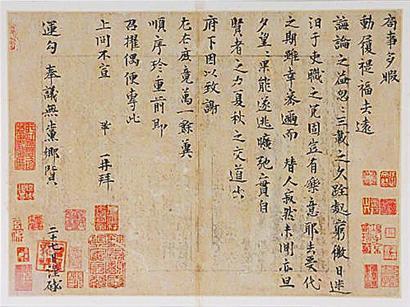 局事多暇
動履禔福去遠
誨論之益忽三載之久跧處窮徼日迷
汩于吏職之冗固豈有樂意耶去受代
之期雖幸密邇而替人寂然未聞亦旦
夕望望果能遂逃曠弛實自
賢者之力夏秋之交道出
府下因以致謝
左右庶竟萬一餘冀
順序珍重前即
召擢偶便專此
上問不宣 鞏 再拜
運勾奉議無黨鄉賢
二十七日謹啟